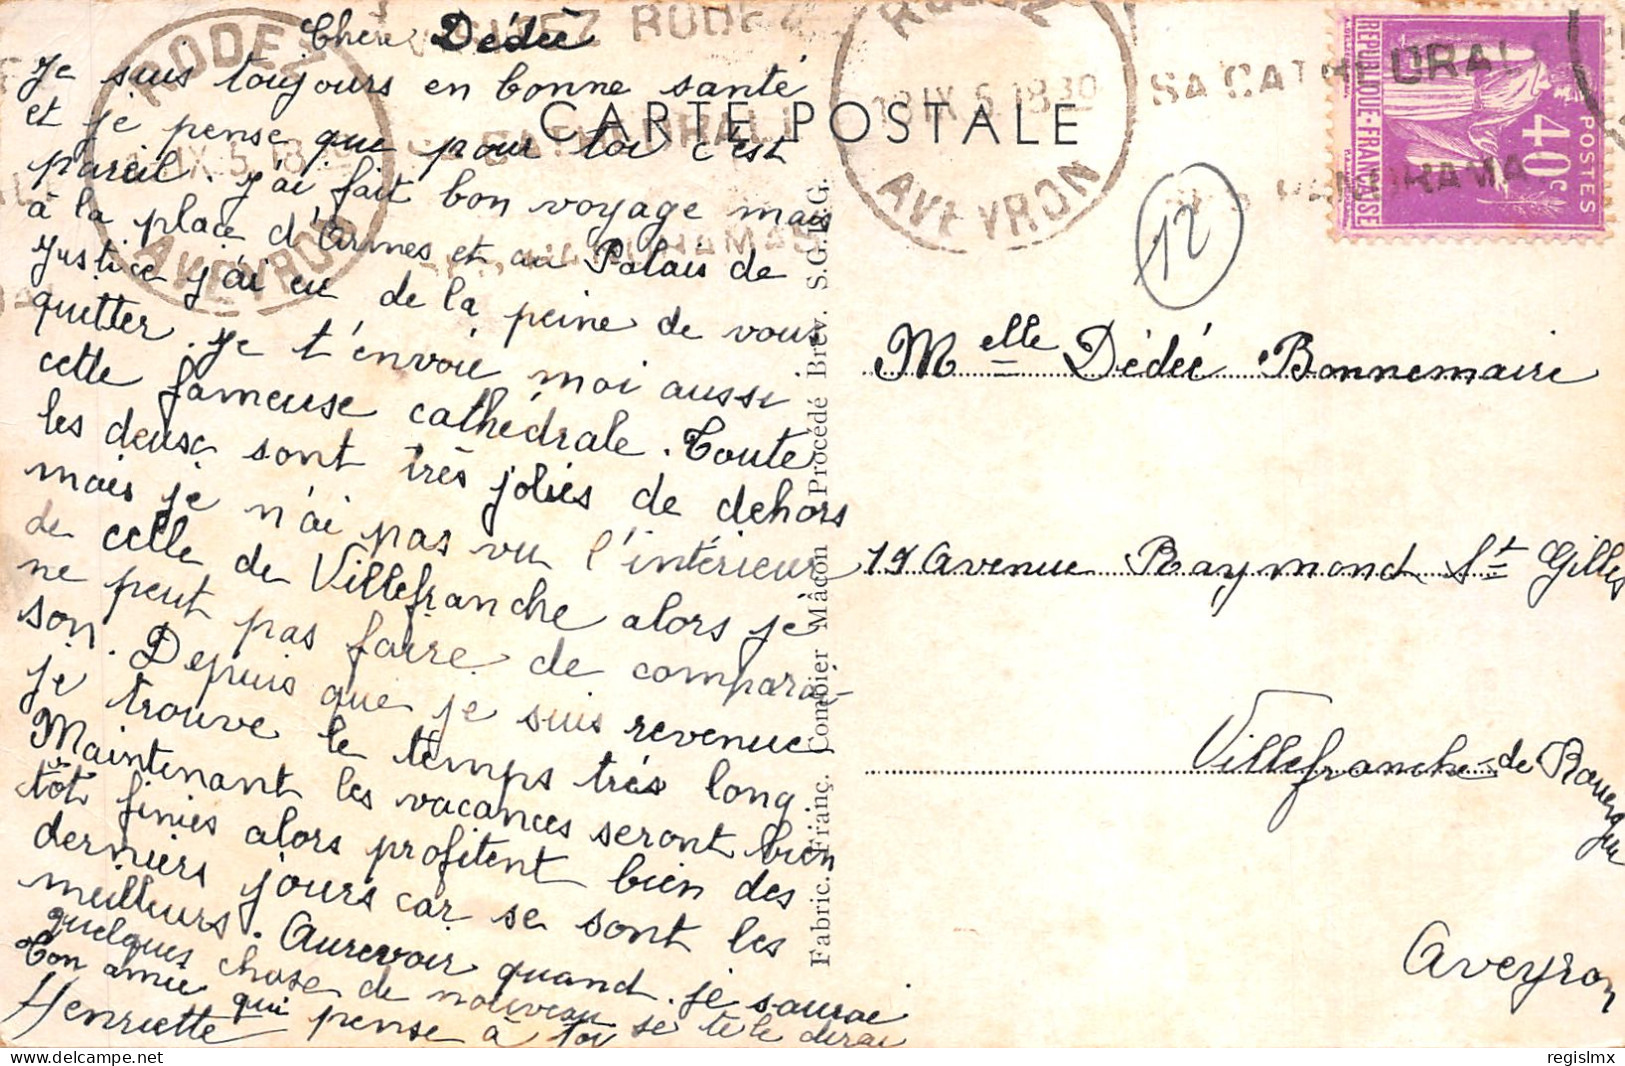 Chère Dédée
Je suis toujours en bonne santé
et je pense que pour toi c'est
pareil. J'ai fait bon voyage mais
à la place d'Armes et au Palais de
justice j'ai eu de la peine de vous
quitter. Je t'envoie moi aussi
cette fameuse cathédrale. Toute
les deux sont très jolies de dehors
mais je n'ai pas vu l'intérieur
de celle de Villefranche alors je
ne peut pas faire de compara-
son. Depuis que je suis revenue
je trouve le temps très long.
Maintenant les vacances seront bien
tôt finies alors profitent bien des
derniers jours car se sont les
meilleurs. Aurevoir quand je saurai
quelques chose de nouveau je te le dirai
Ton amie
Henriette qui pense à toi
CARTE POSTALE
RODEZ
18 IX 5 1830
AVEYRON
VISITEZ RODEZ
SA CATHEDRALE
PANORAMAS
RODEZ
18 IX 5 1830
AVEYRON
SA CATHEDRALE
PANORAMA
REPUBLIQUE-FRANÇAISE
POSTES
40c
12
Fabric. Franç. Combier Mâcon Procédé Brev. S.G.D.G.
Melle Dédée Bonnemaire
19 Avenue Raymond St Gilles
Villefranche-de Rouergue
Aveyron
regislmx